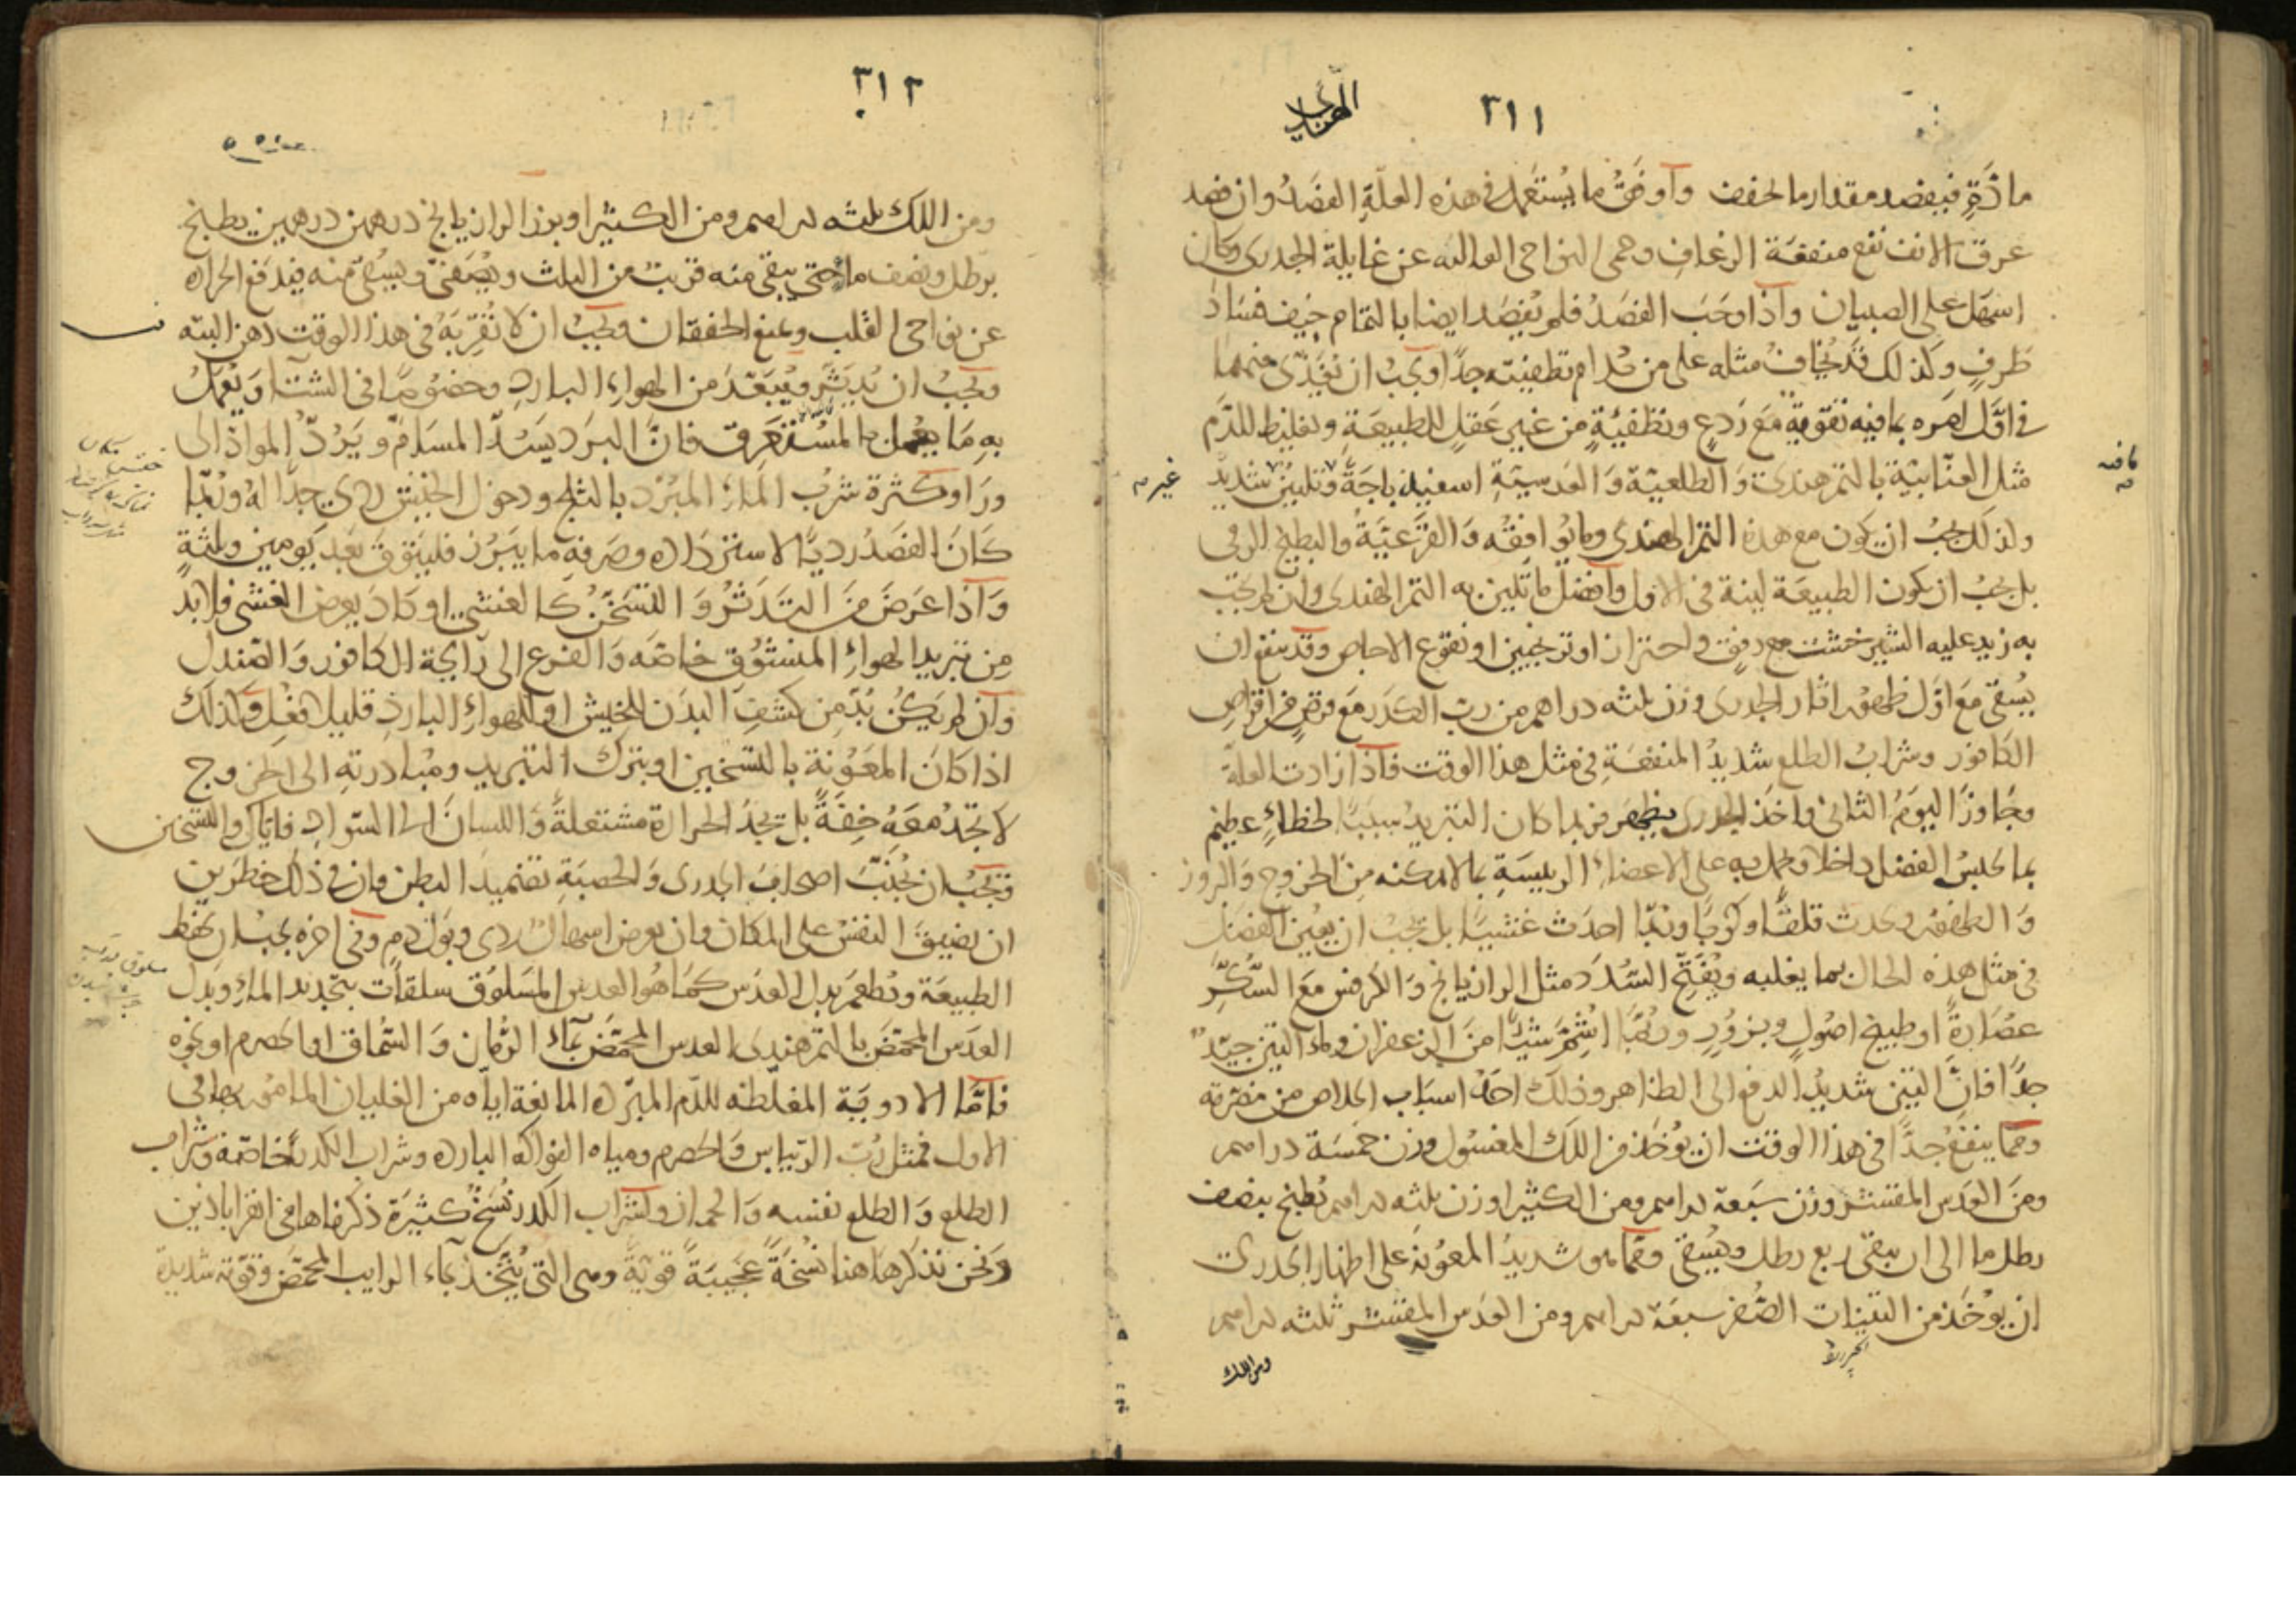 ٣١١
مادّةٍ فيفصد مقدار ما يخفف وأوفق ما يستعمل في هذه العلّةِ الفصدُ وان فصد
عرق الانف نفع منفعة الرعاف وحمى النواحي العاليه عن غايلة الجدرى وكان
اسهل على الصبيان واذا وجب الفصدُ فلم يُفصَد ايضا بالتمام خيف فساد
طرفٍ وكذلك قد يُخاف مثله على من مدام تطفيته جدّا ويجبُ ان يغذّى منهما
في اوّل امره بما فيه تقوية مع ردعٍ وتطفئيةٍ من غير عقلٍ للطبيعة وتغليظ للدّم
مثل العنّابيّة بالتمر هندى والطلعيّة والعدسيّةِ اسفيذباجةً وتليين شديد
ولذلك يجبُ ان يكون مع هذه التمر الهندي وما يوافقه والقرعيّةُ والبطيخ الرقى
بل يجبُ ان يكون الطبيعة لينة في الاول وافضل ما تلين به التمر الهندى وان لم يجب
به زيد عليه الشيرخشت مع رفقٍ واحتراز او ترنجبين او نقوع الاجاص وقد ينفع ان
يُسقى مع اوّل ظهور اثار الجدرى وزن ثلثه دراهم من ربّ الكدر مع قرصٍ من اقراص
الكافور وشرابُ الطلع شديدُ المنفعةِ في مثل هذا الوقت فاذا زادت العلّة
وجاوز اليومُ الثانى واخذ الجدرى يظهر فربما كان التبريدُ سببًا لخطاءٍ عظيم
بما يحبس الفضل داخلا ويحمل به على الاعضاءِ الرييسةِ بما لا يمكنه من الخروج والبروز
والظهور ويحدث قلقًا وكربًا وربّما احدث غشيًا بل يجب ان يعين الفضل
في مثل هذه الحال بما يغليه ويفتّح السدد مثل الرازيانج والكرفس مع السّكّرِ
عصارةً او طبيخ اصولٍ وبزورٍ وربّما اشمّ شيئًا من الزعفران وماء التين جيّد
جدّا فانّ التين شديدُ الدفع الى الظاهر وذلك احد اسباب الخلاص من مضرته
ومما ينفعُ جدّا في هذا الوقت ان يؤخذ من اللك المغسول وزن خمسة دراهم
ومن العدس المقشر وزن سبعة دراهم ومن الكثيرا وزن ثلثه دراهم يُطبخ بنصف
رطل ما الى ان يبقى ربع رطل ويُسقى ومما هو شديدُ المعونة على اظهار الجدرى
ان يؤخذ من التينات الصُفر سبعة دراهم ومن العدس المقشر ثلثه دراهم
ومن اللك
٣١٢
ومن اللك ثلثه دراهم ومن الكثيرا وبزر الرازيانج درهمين درهمين يطبخ
برطل ونصف ماء حتى يبقى منه قريبٌ من الثلث ويُصفى ويُسقى منه فيدفع الحراره
عن نواحى القلب ويمنع الخفقان ويجبُ ان لا تُقرّبه في هذا الوقت دهن البته
ويجبُ ان يُدثّر ويُبعّد من الهواءِ الباردِ وخصوصًا في الشتاء ويُعمل
به ما يعمل بالمستعرق فانّ البرد يسدّ المسامّ ويردّ الموادّ الى
وراء وكثرة شربُ الماءِ المبرّد بالثلج ودخول الخيش ردى جدّا له وربّما
كان الفصدُ رديًّا لاسترداده وصرفه ما يبرز فليتوقّ بعد يومين وثلثةٍ
واذا عرض من التدثّر والتسخّن كالغشى او كاد يعرض الغشى فلابدّ
من تبريد الهواءِ المنشوق خاصّه والفزع الى رايحة الكافور والصّندل
وان لم يكن بدّ من كشف البدن للخيش او للهواءِ البارد قليلا فعل وكذلك
اذا كان المعونة بالتسخين او بترك التبريد ومبادرته الى الخروج
لا تجدُ معهُ خفّةً بل تجد الحرارة مشتعلةً واللسان الى السّواد فاياك والتسخين
ويجبُ ان يُجنّب اصحاب الجدرى والحصبة تضميد البطن وان في ذلك خطرين
ان يضيق النفس على المكان وان يعرض اسهالٌ ردى وبول دم وفي اخره يجب ان يحفظ
الطبيعة وتُطعم بدل العدس كما هو العدس المسلوق سلقات بتجديد الماءِ وبدل
العدس المحمّض بالتمر هندى العدس المحمّض بماء الرّمان والسّماق او الحصرم او نحوه
فامّا الادوية المغلّظه للدّم المبرّده المانعة اياه من الغليان المامور بها في
الاول فمثل ربّ الرّيباس والحصرم ومياه الفواكه البارده وشراب الكدر خاصّة وشراب
الطلع والطلع نفسه والجمار ولشراب الكدر نُسخ كثيرة ذكرناها في اقراباذين
ونحن نذكر هاهنا نسخةً عجيبةً قويةً وهى التى يُتّخذ بماء الرايب المحمّض وقوّته شديدة